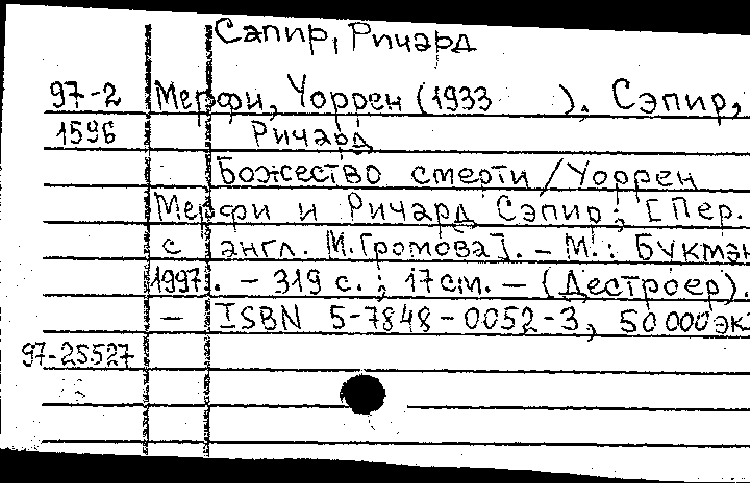 Сапир, Ричард
97-2 Мерфи, Уоррен (1933 ). Сэпир,
1596 Ричард
Божество смерти / Уоррен
Мерфи и Ричард Сэпир; [Пер.
с англ. М. Громова]. - М.: Букман
1997. - 319 с.; 17 cm. - (Дестроер).
- ISBN 5-7848-0052-3, 50 000 эк
97-25527